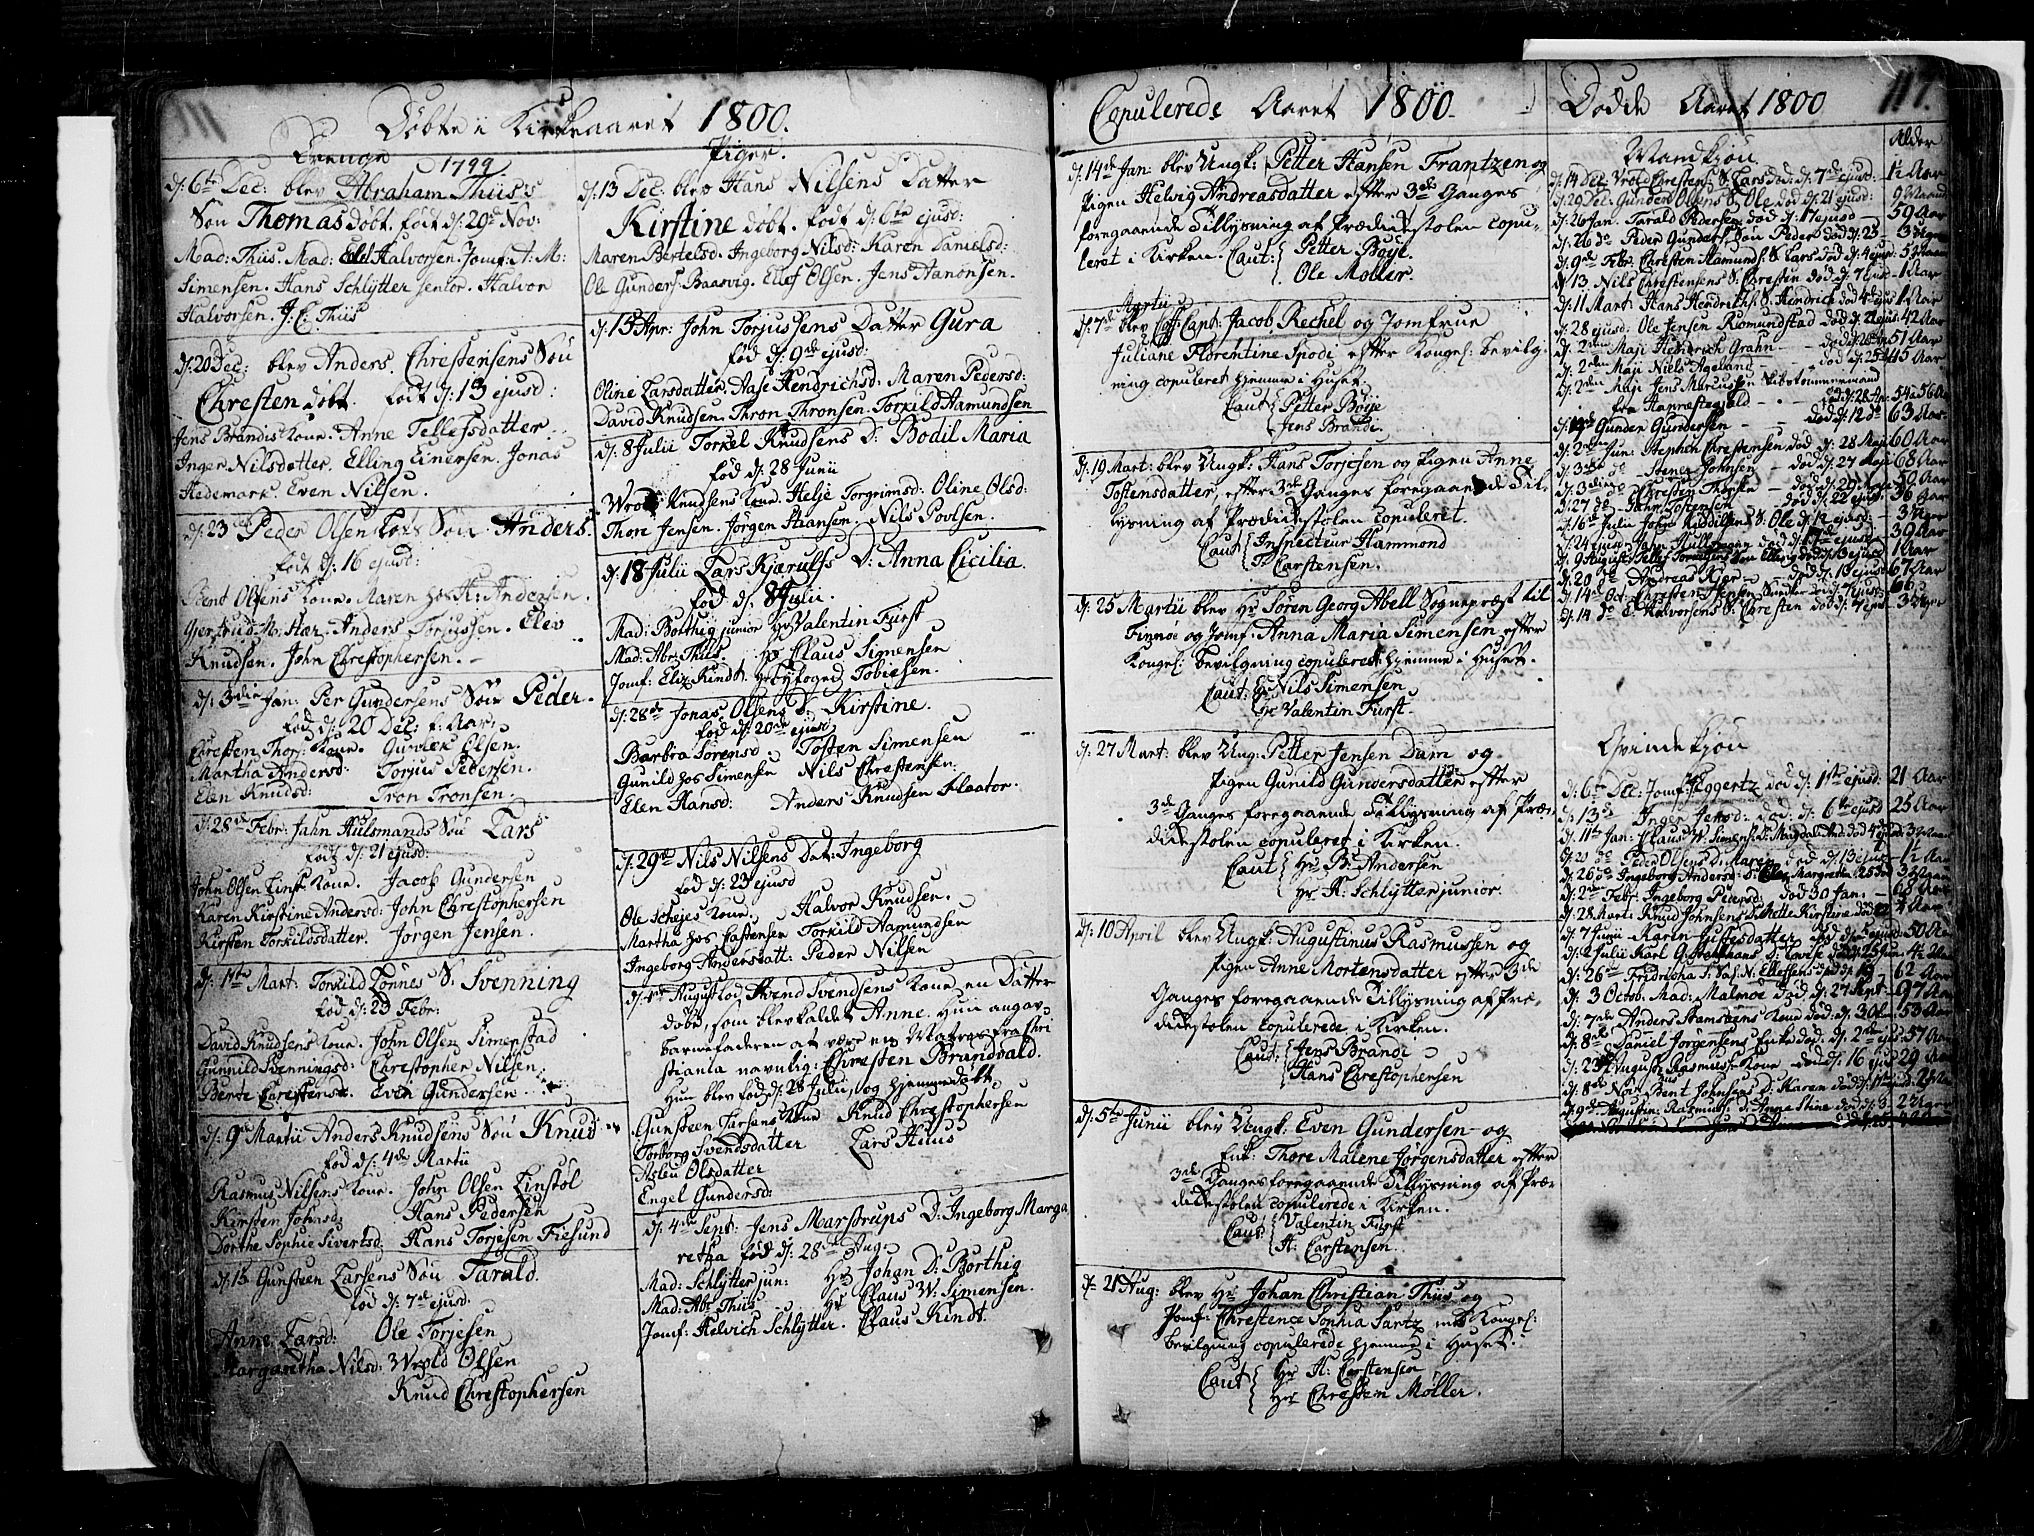 Döbte i Kirkeaaret 1800.
Drenge
1799
d: 6te Dec: blev Abraham Thiis's
Sön Thomas döbt. født d: 29de Nov:
Mad: Thiis. Mad: Halvorsen. Jomf: A: M:
Simensen. Hans Schlytter senior. Halvor
Halvorsen. J: C: Thiis
d: 20 Dec: blev Anders Chrestensens Sön
Chresten döbt. født d: 13 ejusd:
Jens Brandis Kone. Anne Tellefsdatter.
Inger Nilsdatter. Elling Einersen. Jonas
Hedemark. Even Nilsen.
d: 23 Peder Olsen Sön Anders.
født d: 16 ejusd:
Bent Olsens Kone. Maren hos H: Andersen.
Gjertrud M: Hær. Anders Torjussen. Elev
Knudsen. John Chrestophersen.
d: 3die Jan: Per Gundersens Sön Peder.
fød d: 20 Dec: f: Aar.
Chresten Thor: Kone. Gunder Olsen.
Martha Andersd: Torjus Pedersen.
Elen Knudsd: Tron Tronsen.
d: 28de Febr: Jahn Hulsmands Sön Lars
født d: 21 ejusd:
John Olsen Linst: Kone. Jacob Gundersen
Karen Kirstine Andersd: John Chrestophersen
Kirsten Torkildsdatter. Jørgen Jensen.
d: 1ste Mart: Torkild Lønnes S: Svenning
fød d: 23 Febr:
David Knudsens Kone. John Olsen Simenstad
Gunnild Svenningsd: Chrestopher Nilsen.
Berte Chrestensd: Even Gundersen.
d: 9de Martii Anders Knudsens Sön Knud
fød d: 4de Martii
Rasmus Nilsens Kone. John Olsen Linstöl
Kirsten Johnsd: Hans Pedersen
Dorthe Sophie Sivertsd: Hans Torjesen Fiesund
d: 13 Gunsteen Larsens Sön Tarald.
fød d: 7de ejusd:
Anne Larsd: Ole Torjesen
Margaretha Nilsd: Wrold Olsen
Knud Chrestophersen
Piger.
d: 13 Dec: blev Hans Nilsens Datter
Kirstine döbt. født d: 6te ejusd:
Maren Bertelsd: Ingeborg Nilsd: Karen Danielsd:
Ole Gunders: Baasvig. Ellef Olsen. Jens Aanonsen.
d: 13 Apr: John Torjussens Datter Gura
fød d: 9de ejusd:
Oline Larsdatter. Aase Hendrichsd: Maren Pedersd:
David Knudsen. Thron Thronsen. Torkild Aamundsen
d: 8 Julii Torkel Knudsens D: Bodil Maria
fød d: 28 Junii
Wrold Knudsens Kone. Helje Torgrimsd: Oline Olsd:
Thore Jensen. Jørgen Hansen. Nils Povlsen.
d: 18 Julii Lars Kjærulfs D: Anna Cicilia.
fød d: 8 Julii.
Mad: Borthig junior Hr Valentin Fürst
Mad: Abr: Thiis. Hr Claus Simensen
Jomf: Eliz: Kindt. Hr Byfoged Tobiesen.
d: 28de Jonas Olsens D: Kirstine.
fød d: 20de ejusd:
Barbra Sörensd: Tosten Simensen
Gunild hos Simensen Nils Chrestensen.
Elen Hansd: Anders Knudsen Fløator.
d: 29de Nils Nilsens Dat: Ingeborg
fød d: 23 ejusd
Ole Schejes Kone. Halvor Knudsen.
Martha hos Castensen Torkild Aamundsen
Ingeborg Andersdatt: Peder Nilsen
d: 1ste August lod Svend Svendsens Kone en Datter
döbe, som blev kaldet Anne. Hun angav
barnefaderen at være en Matros fra Chri
stiania navnlig: Chresten Brandvald.
Hun blev fød d: 28 Julii, og hjemmedöbt
Gunsteen Larsens Kone Knud Chrestophersen
Torborg Svendsdatter Lars Heuus
Aslev Olsdatter
Engel Gundersd:
d: 4de Sept: Jens Marstrups D: Ingeborg Marga
retha fød d: 28de Aug:
Mad: Schlytter jun: Hr Johan D: Borthig
Mad: Abr: Thiis Hr Claus W: Simensen.
Jomf: Helvich Schlytter. Claus Kindt.
Copulerede Aaret 1800.
d: 14de Jan: blev Ungk: Petter Hansen Frantzen og
Pigen Helvig Andreasdatter efter 3de Ganges
foregaaende Tillysning af Prædickestolen copu-
leret i Kirken. Caut: Petter Böye.
Ole Moller.
Martii
d: 7de blev Capt: Jacob Rechel og Jomfrue
Juliane Florentine Spodi efter Kongel: bevilg
ning copuleret hjemme i Huset.
Caut Petter Böye
Jens Brandi
d: 19 Mart: blev Ungk: Hans Torjesen og Pigen Anne
Tostensdatter, efter 3de Ganges foregaaende Til-
lysning af Prædickestolen copuleret.
Caut Inspecteur Hammond
Carstensen.
d: 25 Martii blev Hr Sören Georg Abell Sognepræst til
Finnøe og Jomf: Anna Maria Simensen efter
Kongel: bevilgning copuleret hjemme i Huset.
Caut: Hr Nils Simensen
Hr Valentin Fürst.
d: 27 Mart: blev Ung: Petter Jensen Dam og
Pigen Gunild Gundersdatter efter
3de Ganges foregaaende Tillysning af Præ-
dickestolen copuleret i Kirken.
Caut Hr P: Andersen
Hr H: Schlytter junior.
d: 10 April blev Ungk: Augustinus Rasmussen og
Pigen Anne Mortensdatter efter 3de
Ganges foregaaende Tillysning af Præ-
dickestolen copulerede i Kirken.
Caut: Jens Brandi
Hans Chrestophersen
d: 5te Junii blev Ungk: Even Gundersen og
Enk: Thore Malene Jørgensdatter efter
3de Ganges foregaaende Tillysning af Præ-
dickestolen copulerede i Kirken.
Caut Valentin Fürst
H: Carstensen.
d: 21 Aug: blev Hr Johan Christian Thiis og
Jomf: Chrestence Sophia Sartz med Kongel:
bevilgning copulerede hjemme i Huset.
Caut Hr H: Carstensen
Hr Chresten Möller.
Dödde Aaret 1800
117.
Mandkjön
Alder
d: 14 Dec: Wrold Chrestens: S: Lars død d: 7de ejusd: 1½ Aar
d: 29 Dec: Gunder Olsens S: Ole død d: 21 ejusd: 9 Maan
d: 26 Jan: Tarald Pedersen død d: 17 ejusd 59 Aar
d: 26 do Peder Gunders: Sön Peder død d: 23 3 Uger
d: 9de Febr: Chresten Hamunds: S: Lars død d: 4 ejusd:
d: 13 Nils Chrestensens S: Chresten død d: 7 ejusd: 1 Aar
d: 11 Mart: Hans Hendrichs: S: Hendrich død 4de ejus 1 Aar
d: 28 ejusd: Ole Jensen Romundstad død d: 21 ejus: 42 Aar
d: 2den Maji Hendrich Grahn 51 Aar
d: 2den Maji Niels Ageland død d: 25 45 Aar
d: 2den Maji Jens Marcussen Skibstömmermand
død d: 28 Apr: 54 a 56 Aar
Gunder Gundersen død d: 12 do 63 Aar
d: 2den Jun: Stephen Chrestensen død d: 28 Maji 60 Aar
d: 3die do Stener Johnsen død d: 27 Maji 68 Aar
d: 3die do Chresten Thorse død d: 29 Maji 59 Aar
d: 27 do Jahn Tostensen død d: 22 ejusd: 36 Aar
d: 16de Julii John S: Ole d: 12 ejusd: 3 Uger
d: 24 ejusd død d: 17de ejusd: 39 Aar
d: 9 August 1 Aar
d: 20 do Andreas Kjær død d: 13 ejusd 67 Aar
d: 14de Oct: Chresten Jensen Snedker død d: 7 ejusd: 66
d: 14 do E: Halvorsens S: Chresten død d: 7 ejus: 3 Uger
Qvindekjön
d: 6te Dec: Jomf: Eggertz død d: 1ste ejusd: 21 Aar
d: 13de Inger Jensd: død d: 6te ejusd 25 Aar
d: 11te Jan: Claus W: Simens: D: Magdal:
d: 20 do Peder Olsens D: Maren død d: 13 ejusd: 1½ Aar
d: 26 do Ingeborg Andersd:
d: 2de Febr: Ingeborg Pedersd: død 30 Jan: 68 Aar
d: 28 Mart: Knud Johnsens D: Mette Kirstine død
d: 7 Junii Karen Justesdatter død d: 2 ejusd: 50 Aar
d: 2 Julii Karl G: D: Lovise død d: 25 Jun: 4½ Aar
d: 26de Fridricha S: Sal: N: Ellefsens død d: 19 62 Aar
d: 3 Octob: Mad: Malmøe død d: 27 Sept 97 Aar
d: 7de Anders Stensbens Kone død d: 30 53 Aar
d: 8de Daniel Jørgensens Enke død d: 2den ejus 57 Aar
d: 23 August: Rasmus: Kone død d: 16 ejusd 29 Aar
d: 8de Nov: Bent Johnsens D: Karen død d: 1ste ejusd:
d: 9de Augustin: Rasmuss: D: Anne Stine død d: 3 2 Uger